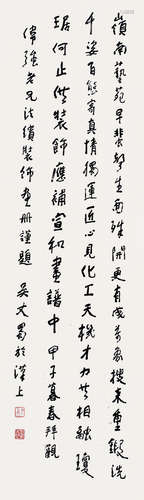 嶺南藝苑早蜚聲生面殊開更有成萬象搜來重鍛洗
千姿百態寄真情獨運匠心見化工天機才力共相融瓊
琚何止供裝飾應補宣和畫譜中甲子暮春拜觀
偉強老兄法繢裝飾畫册謹題吴丈蜀於漢上